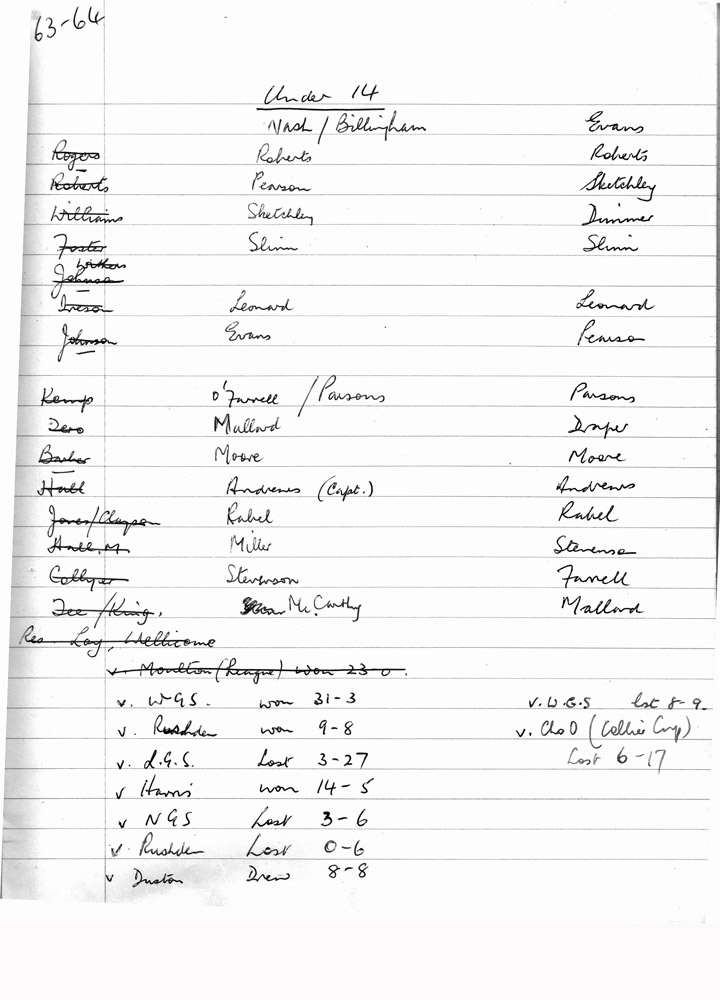 63-64
Under 14
Nash / Billingham Evans
Rogers Roberts Roberts
Roberts Pearson Sketchley
Williams Sketchley Dimmer
Foster Slinn Slinn
Withers
Johnson
Ireson Leonard Leonard
Johnson Evans Pearson
Kemp O'Farrell / Parsons Parsons
Dero Mallard Draper
Barker Moore Moore
Hall Andrews (Capt.) Andrews
Jones/Clayson Rabel Rabel
Hall, M. Miller Stevenson
Collyer Stevenson Farrell
Tee /King, McCarthy Mallard
Res. Lay, Wellicome
v. Moulton (League) won 23-0.
v. W.G.S. won 31-3 v. W.G.S lost 8-9.
v. Rushden won 9-8 v. Cho O (Collier Cup)
v. L.G.S. Lost 3-27 Lost 6-17
v Harris won 14-5
v NGS Lost 3-6
v. Rushden Lost 0-6
v Duston Drew 8-8